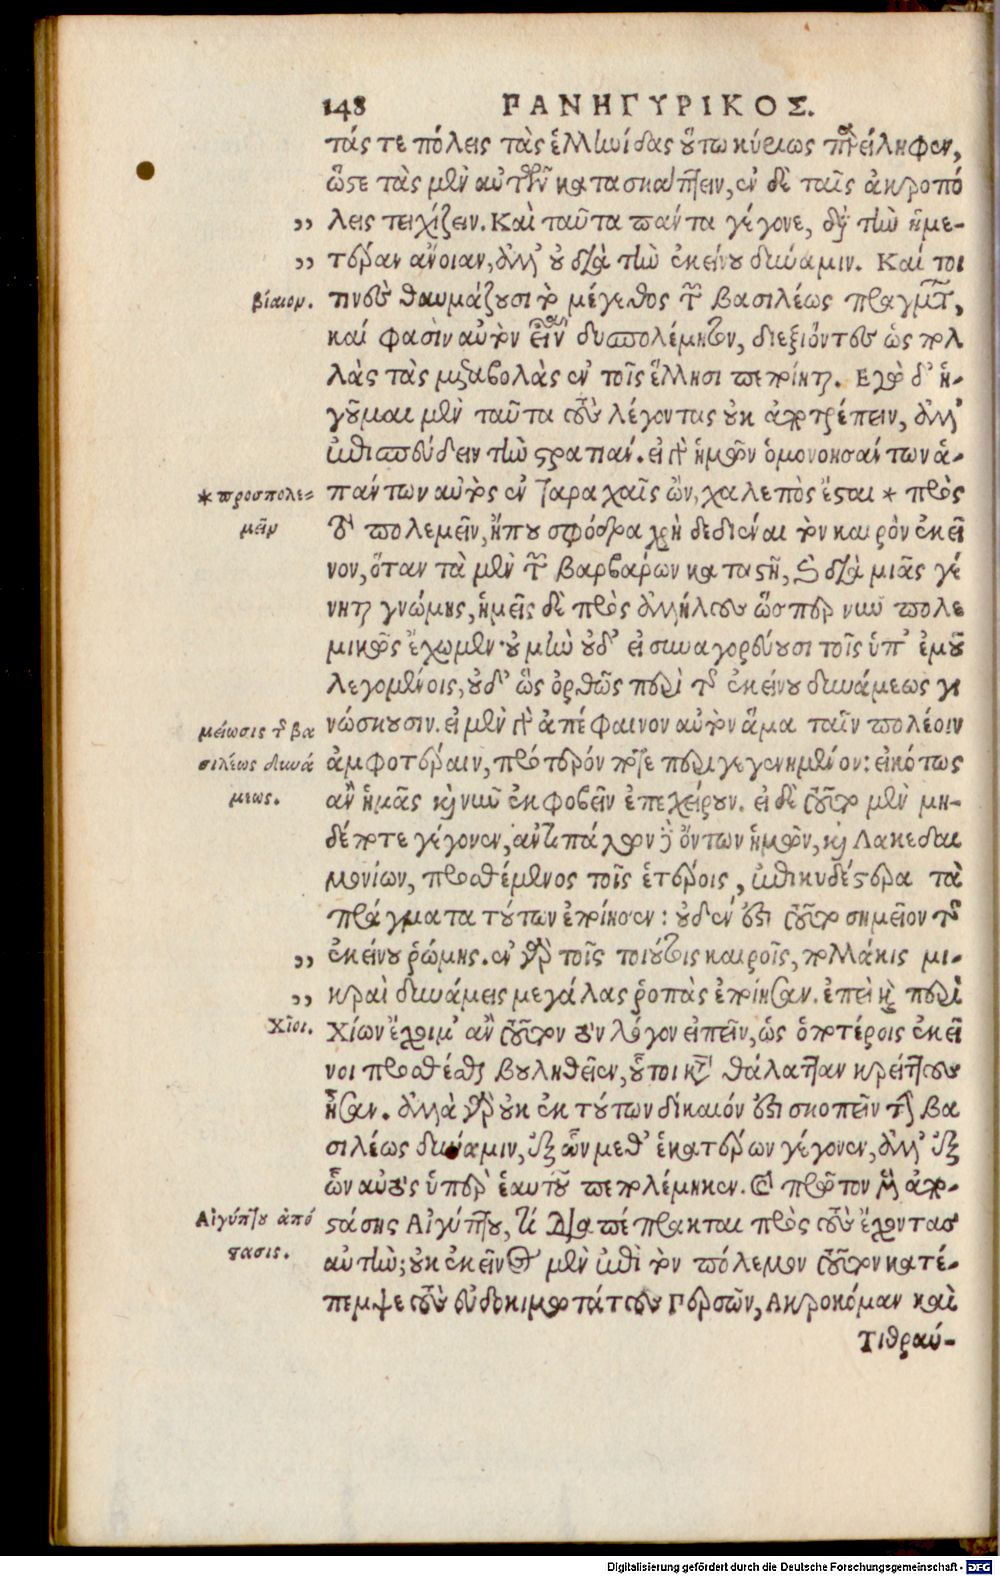 148 ΠΑΝΗΓΥΡΙΚΟΣ.
τάς τε πόλεις τὰς ἑλληνίδας οὕτω κυρίως παρείληφεν,
ὥστε τὰς μὲν αὐτῶν κατασκάπτειν, ἐν δὲ ταῖς ἀκροπό
,, λεις τειχίζειν. Καὶ ταῦτα πάντα γέγονε, διὰ τὴν ἡμε-
,, τέραν ἄνοιαν, ἀλλ' οὐ διὰ τὴν ἐκείνου δύναμιν. Καί τοι
βίαιον. τινὲς θαυμάζουσι τὸ μέγεθος τῶν βασιλέως πραγμάτων,
καί φασὶν αὐτὸν εἶναι δυσπολέμητον, διεξιόντες ὡς πολ
λὰς τὰς μεταβολὰς ἐν τοῖς ἕλλησι πεποίηται. Εγὼ δ' ἡ-
γοῦμαι μὲν ταῦτα τοὺς λέγοντας οὐκ ἀποτρέπειν, ἀλλ'
ἐπισπεύδειν τὴν στρατιάν. εἰ γὰρ ἡμῶν ὁμονοησάντων ἁ-
* προσπολε=
μεῖν
πάντων αὐτὸς ἐν ταραχαῖς ὢν, χαλεπὸς ἔσται * πρὸς
τὸ πολεμεῖν, ἤπου σφόδρα χρὴ δεδιέναι τὸν καιρὸν ἐκεῖ
νον, ὅταν τὰ μὲν τῶν βαρβάρων καταστῇ, καὶ διὰ μιᾶς γέ
νηται γνώμης, ἡμεῖς δὲ πρὸς ἀλλήλους ὥσπερ νῦν πολε
μικῶς ἔχωμεν. οὐ μὴν οὐδ' εἰ συναγορεύουσι τοῖς ὑπ' ἐμοῦ
λεγομένοις, οὐδ' ὣς ὀρθῶς περὶ τῆς ἐκείνου δυνάμεως γι
μείωσις τῆς βα
σιλέως δυνά
μεως.
νώσκουσιν. εἰ μὲν γὰρ ἀπέφαινον αὐτὸν ἅμα ταῖν πολέοιν
ἀμφοτέραιν, πρότερόν ποτε περιγεγενημένον: εἰκότως
ἂν ἡμᾶς καὶ νῦν ἐκφοβεῖν ἐπεχείρουν. εἰ δὲ τοῦτο μὲν μη-
δέποτε γέγονεν, ἀντιπάλων δὲ ὄντων ἡμῶν, καὶ Λακεδαι
μονίων, προσθέμενος τοῖς ἑτέροις, ἐπικυδέστερα τὰ
πράγματα τούτων ἐποίησεν: οὐδέν ἐστι τοῦτο σημεῖον τῆς
,, ἐκείνου ῥώμης. ἐν γὰρ τοῖς τοιούτοις καιροῖς, πολλάκις μι-
,, κραὶ δυνάμεις μεγάλας ῥοπὰς ἐποίησαν. ἐπεὶ καὶ περὶ
Χῖοι. Χίων ἔχοιμ' ἂν τοῦτον τὸν λόγον εἰπεῖν, ὡς ὁποτέροις ἐκεῖ
νοι προσθέσθαι βουληθεῖεν, οὗτοι κατὰ θάλατταν κρείττους
ἦσαν. ἀλλὰ γὰρ οὐκ ἐκ τούτων δίκαιόν ἐστι σκοπεῖν τὴν βα
σιλέως δύναμιν, ἐξ ὧν μεθ' ἑκατέρων γέγονεν, ἀλλ' ἐξ
ὧν αὐτὸς ὑπὲρ ἑαυτοῦ πεπολέμηκεν. Καὶ πρῶτον μὲν ἀπο-
Αἰγύπτου ἀπό
στασις.
στάσης Αἰγύπτου, τί διαπέπρακται πρὸς τοὺς ἔχοντας
αὐτήν; οὐκ ἐκεῖνος μὲν ἐπὶ τὸν πόλεμον τοῦτον κατέ-
πεμψε τοὺς εὐδοκιμωτάτους Περσῶν, Ακροκόμαν καὶ
Τιθραύ-
Digitalisierung gefördert durch die Deutsche Forschungsgemeinschaft - DFG